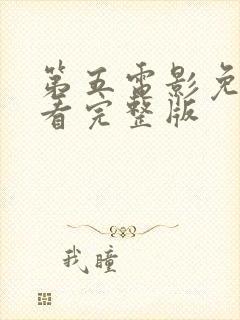 第五电影免
看完整版
我瞳